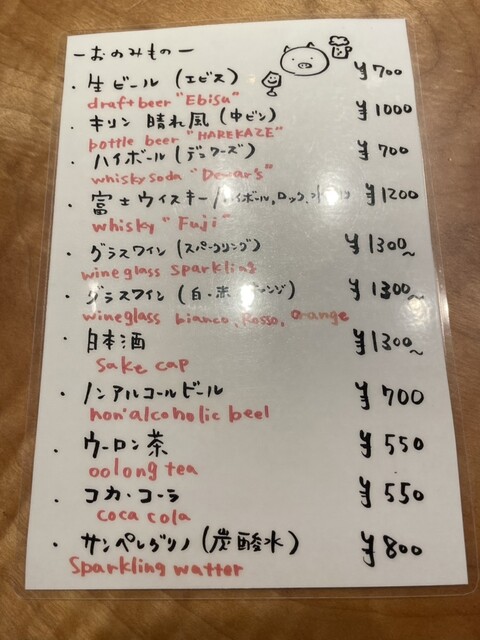 ーおのみものー
・生ビール (エビス) ¥700
draft beer "Ebisu"
・キリン 晴れ風 (中ビン) ¥1000
bottle beer "HAREKAZE"
・ハイボール (デュワーズ) ¥700
whisky soda "Dewar's"
・富士ウイスキー/ハイボール,ロック, ¥1200
whisky "Fuji"
・グラスワイン (スパークリング) ¥1300~
wine glass sparkling
・グラスワイン (白・赤 ンジ) ¥1300~
wine glass bianco, Rosso, orange
・日本酒 ¥1300~
sake cap
・ノンアルコールビール ¥700
non'alcoholic beel
・ウーロン茶 ¥550
oolong tea
・コカ・コーラ ¥550
coca cola
・サンペレグリノ (炭酸水) ¥800
Sparkling watter